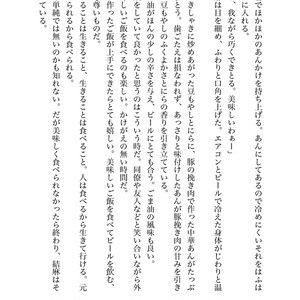 でほかほかのあんかけを持ち上げる。あんにしてあるので冷めにくいそれをはふは
に入れる。
、我ながら巧くできとる。美味しいわぁー」
は目を細め、ふわりと口角を上げた。エアコンとビールで冷えた身体がじわりと温
きしゃきに炒めあがった豆もやしとにらに、豚の挽き肉で作った中華あんがたっぷ
とう。歯ごたえは損なわれず、あっさりと味付けしたあんが豚挽き肉の甘みを引き
豆もやしのふくよかさとにらの香りを引き立てている。
油がほんの少しの辛さを与え、ビールにとても合う。ごま油の風味も良い。
をしていて良かったと思うのはこういう時だ。同僚や友人などと笑い合いながら外
しいご飯を食べるのも楽しい。かけがえの無い時間だ。
作ったご飯が上手にできたらとても嬉しい。美味しいご飯を食べてビールを飲む、
尊いものだ。
ることは生きること、生きることは食べること。人は食べるから生きて行ける。元
らから食べられる。
単純では無いのかも知れない。だが美味しく食べられなかったら終わり、結麻はそ